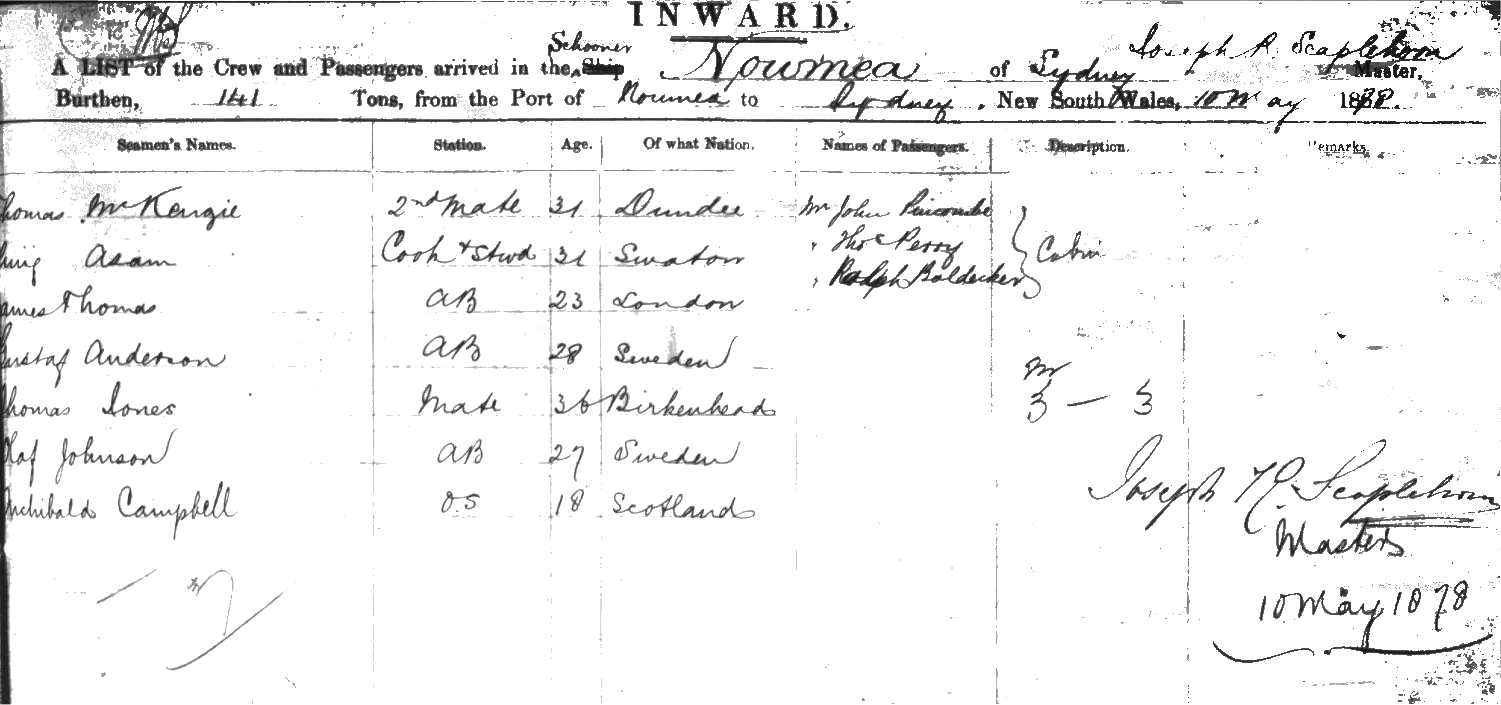 INWARD.
Schooner
A LIST of the Crew and Passengers arrived in the Ship Noumea of Sydney Joseph R. Scaplehorn Master,
Burthen, 141 Tons, from the Port of Noumea to Sydney, New South Wales, 10 May 1878.
Seamen's Names. Station. Age. Of what Nation. Names of Passengers. Description. Remarks
Thomas McKenzie 2nd Mate 31 Dundee Mr John Pincombe
Asam Cook + Stwd 31 Swatow " Thos Perry Cabin
" Ralph Boldecker
James Thomas AB 23 London
Gustaf Anderson AB 28 Sweden
M
Thomas Jones Mate 36 Birkenhead 3 — 3
Olaf Johnson AB 27 Sweden
Archibald Campbell OS 18 Scotland
Joseph R. Scaplehorn
Master
10 May 1878